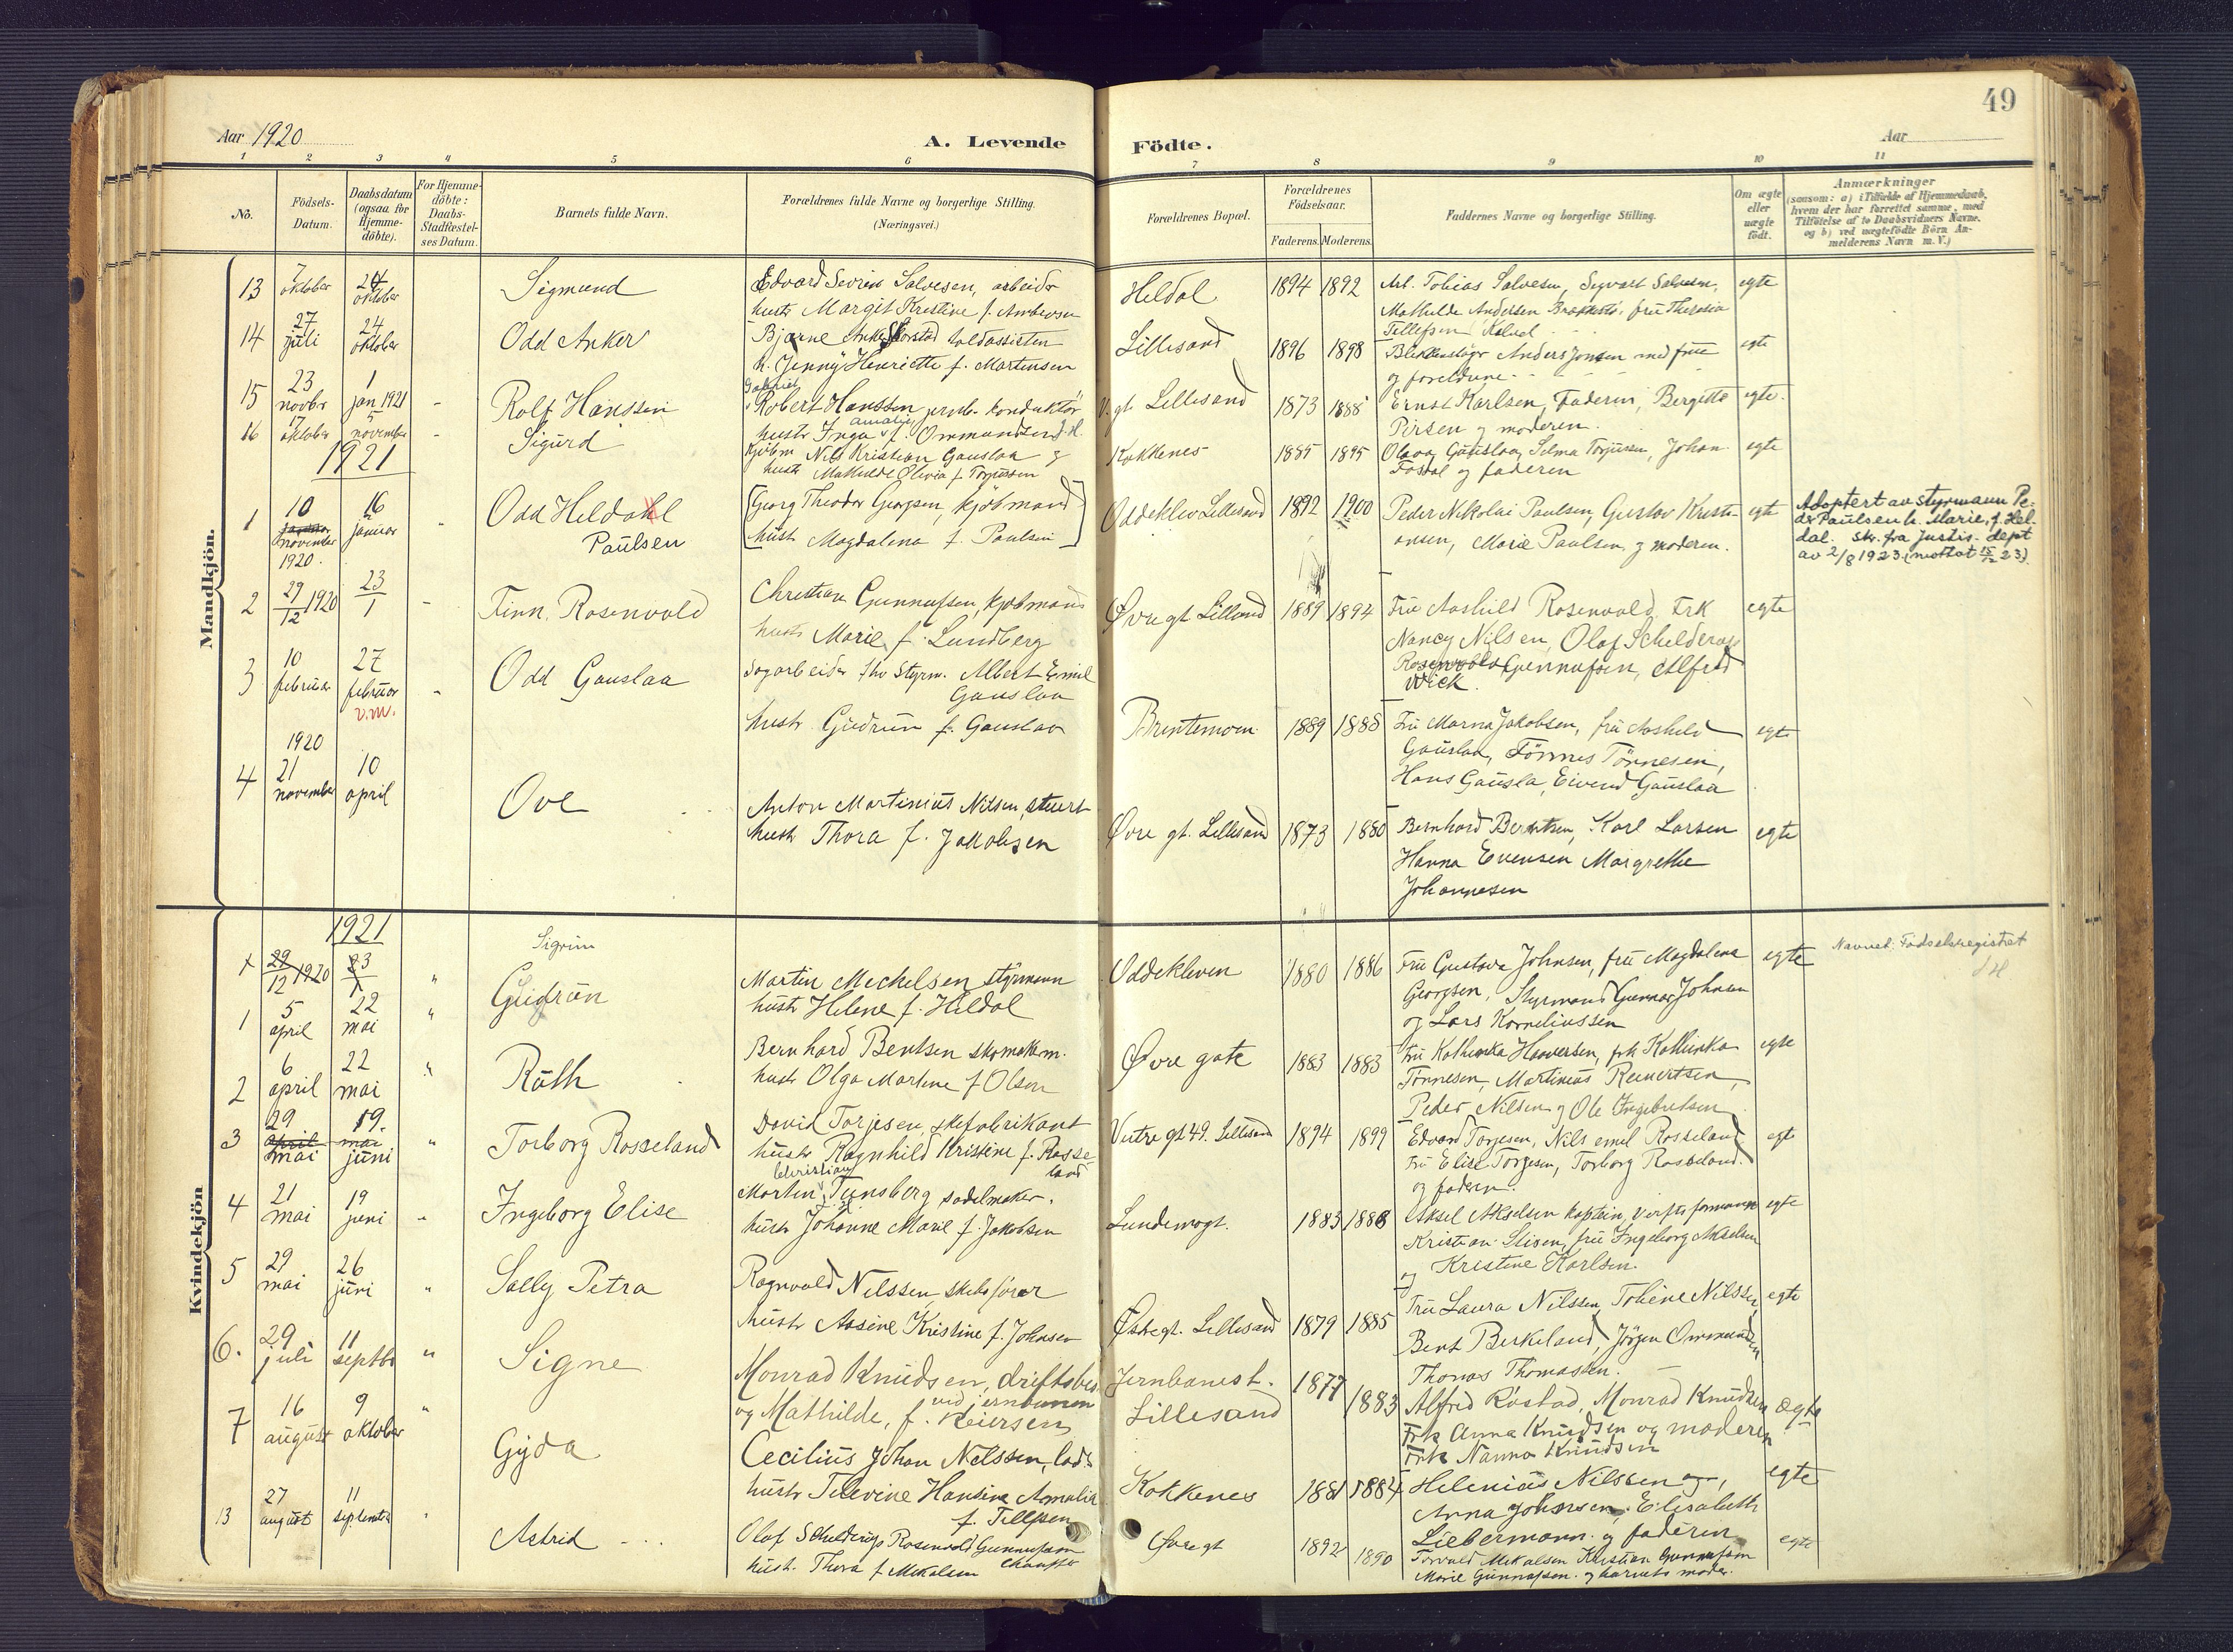 49
Aar 1920
A. Levende Födte.
Aar
1 2 3 4 5 6 7 8 9 10 11
No.
Födsels-
Datum.
Daabsdatum
(ogsaa for
Hjemme-
döbte).
For Hjemme-
döbte:
Daabs-
Stadfæstel-
ses Datum.
Barnets fulde Navn.
Forældrenes fulde Navne og borgerlige Stilling.
(Næringsvei.)
Forældrenes Bopæl.
Forældrenes
Födselsaar.
Faderens. Moderens.
Faddernes Navne og borgerlige Stilling.
Om ægte
eller
uægte
födt.
Anmærkninger
(saasom: a) i Tilfælde af Hjemmedaab,
hvem der har forrettet samme, med
Tilföielse af to Daabsvidners Navne.
og b) ved uægtefödte Börn An-
melderens Navn m. V.)
Mandkjön.
13
7
oktober
24
oktober
Sigmund
Edvard Severin Salvesen, arbeider
hustr Margit Kristine f.
Heldal
1894 1892
Arb. Tobias Salvesen, Sigvart Salvesen,
Mathilde Andersen fru Theresia
Tellefsen
egte
14
27
juli
24
oktober
Odd Anker
Bjarne Anker toldassistent
h. Jenny Henriette f. Martensen
Lillesand
1896 1898
Anders Jonsen med frue
og foreldrene
egte
15
23
novbr
1
jan 1921
Rolf Hanssen
Gabriel
Robert Hanssen jernb. konduktör
Amalie
hustr Inga f. Ommundsen
V. gt. Lillesand
1873 1888
Ernst Karlsen, Faderen, Bergitte
og moderen.
egte
16
17
oktober
5
november
Sigurd
Kjöbm Nils Kristian Gauslaa og
hustr Mathilde Olivia f. Torjussen
Kokkenes
1885 1895
Olava Gauslaa, Selma Torjussen, Johan
og faderen
egte
1921
1
10
november
1920
16
januar
Odd Heldahl
Paulsen
[Georg Theodor Georgsen, kjöbmand
hustr Magdalena f. Paulsen]
Oddekleiv Lillesand
1892 1900
Peder Nikolai Paulsen, Gustav Kristi-
ansen, Marie Paulsen og moderen.
egte
Adoptert av styrmann Pe-
der Paulsen h. Marie, f. Hel-
dal. Skr. fra Justis-dept
av 2/8 1923 (mottat 15/12 23).
2
29/12 1920
23/1
Finn Rosenvold
Christian Gunnufsen, kjöbmand
hustr Marie f. Lundberg
Øvregt Lillesand
1889 1894
Fru Aashild Rosenvold, Frk
Nancy Nilsen, Olaf Schelderup
Rosenvold Gunnufsen, Alfred
Wick.
egte
3
10
februar
27
februar
v.m.
Odd Gauslaa
Sagarbeider fhv styrm. Albert Emil
Gauslaa
hustr Gudrun f. Gauslaa
Brentemoen
1889 1888
Fru Marna Jakobsen, fru Aashild
Gauslaa, Tönnes Tönnesen,
Hans Gausla, Eivend Gauslaa
egte
4
1920
21
november
10
april
Ove
Anton Martinius Nilsen, stuert
hustr Thora f. Jakobsen
Øvre gt. Lillesand
1873 1880
Bernhard Berntsen, Karl Larsen
Hanna Evensen Margrethe
Johannesen
egte
Kvindekjön
1921
29/12 1920
23/1
Sigrun
1
5
april
22
mai
Gudrun
Martin Mechelsen styrmann
hustr Helene f. Heldal
Oddekleven
1880 1886
Fru Gustava Johnsen, fru Magdalena
Georgsen, Styrmand Gunnar Johnsen
og Lars Korneliussen
egte
Navnet: Födselsregistret
2
6
april
22
mai
Ruth
Bernhard Bentsen skomakerm.
hustr Olga Martine f Olsen
Øvre gate
1883 1883
Fru Kathinka Haaversen, frk Kathinka
Tönnesen, Martinius Reinertsen,
Peder Nilsen og Ole Ingebretsen
egte
3
29
april
mai
19.
mai
juni
Torborg Rosseland
David Torjesen, skofabrikant
hustr Ragnhild Kristine f. Rosse-
land
Vestre gt 49. Lillesand
1894 1899
Edvard Torjesen, Nils Emil Rosseland
Fru Elise Torjesen, Torborg Rosseland.
og faderen.
egte
4
21
mai
19
juni
Ingeborg Elise
Christian
Morten Tunsberg sadelmaker.
hustr Johanne Marie f. Jakobsen
Lundemogt.
1883 1888
Aksel Akselsen kaptein, Verftsformann
Kristian Elisen, fru Ingeborg Akselsen
og Kristine Karlsen.
egte
5
29
mai
26
juni
Sally Petra
Ragnvald Nilssen skibsförer
hustr Assine Kristine f. Johnsen
Østregt. Lillesand
1879 1885
Fru Laura Nilssen, Tobine Nilssen
Bent Birkeland, Jörgen Ommundsen
Thomas Thomassen.
egte
6.
29
juli
11
septbr
Signe
Monrad Knudsen, driftsbes
ved jernbanen
og Mathilde, f. Reiersen
Jernbanest.
Lillesand
1877 1883
Alfred Röstad, Monrad Knudsen
Frk Anna Knudsen og moderen
Frk Nanna Knudsen
egte
7
16
august
9
oktober
Gyda
Cecilius Johan Nelssen, lods
hustr Televine Hansine Amalia
f. Tellefsen
Kokkenes
1881 1884
Helenius Nilssen og,
Anna Johnsen, Elisabeth
Liebermann. og faderen
egte
13
27
august
11
september
Astrid
Olaf Schelderup Rosenvold Gunnufsen
chauffør
hustr. Thora f Mikalsen
Øvregt
1892 1890
Torvald Mikalsen Kristian Gunnufsen
Marie Gunnufsen. og barnets moder.
egte